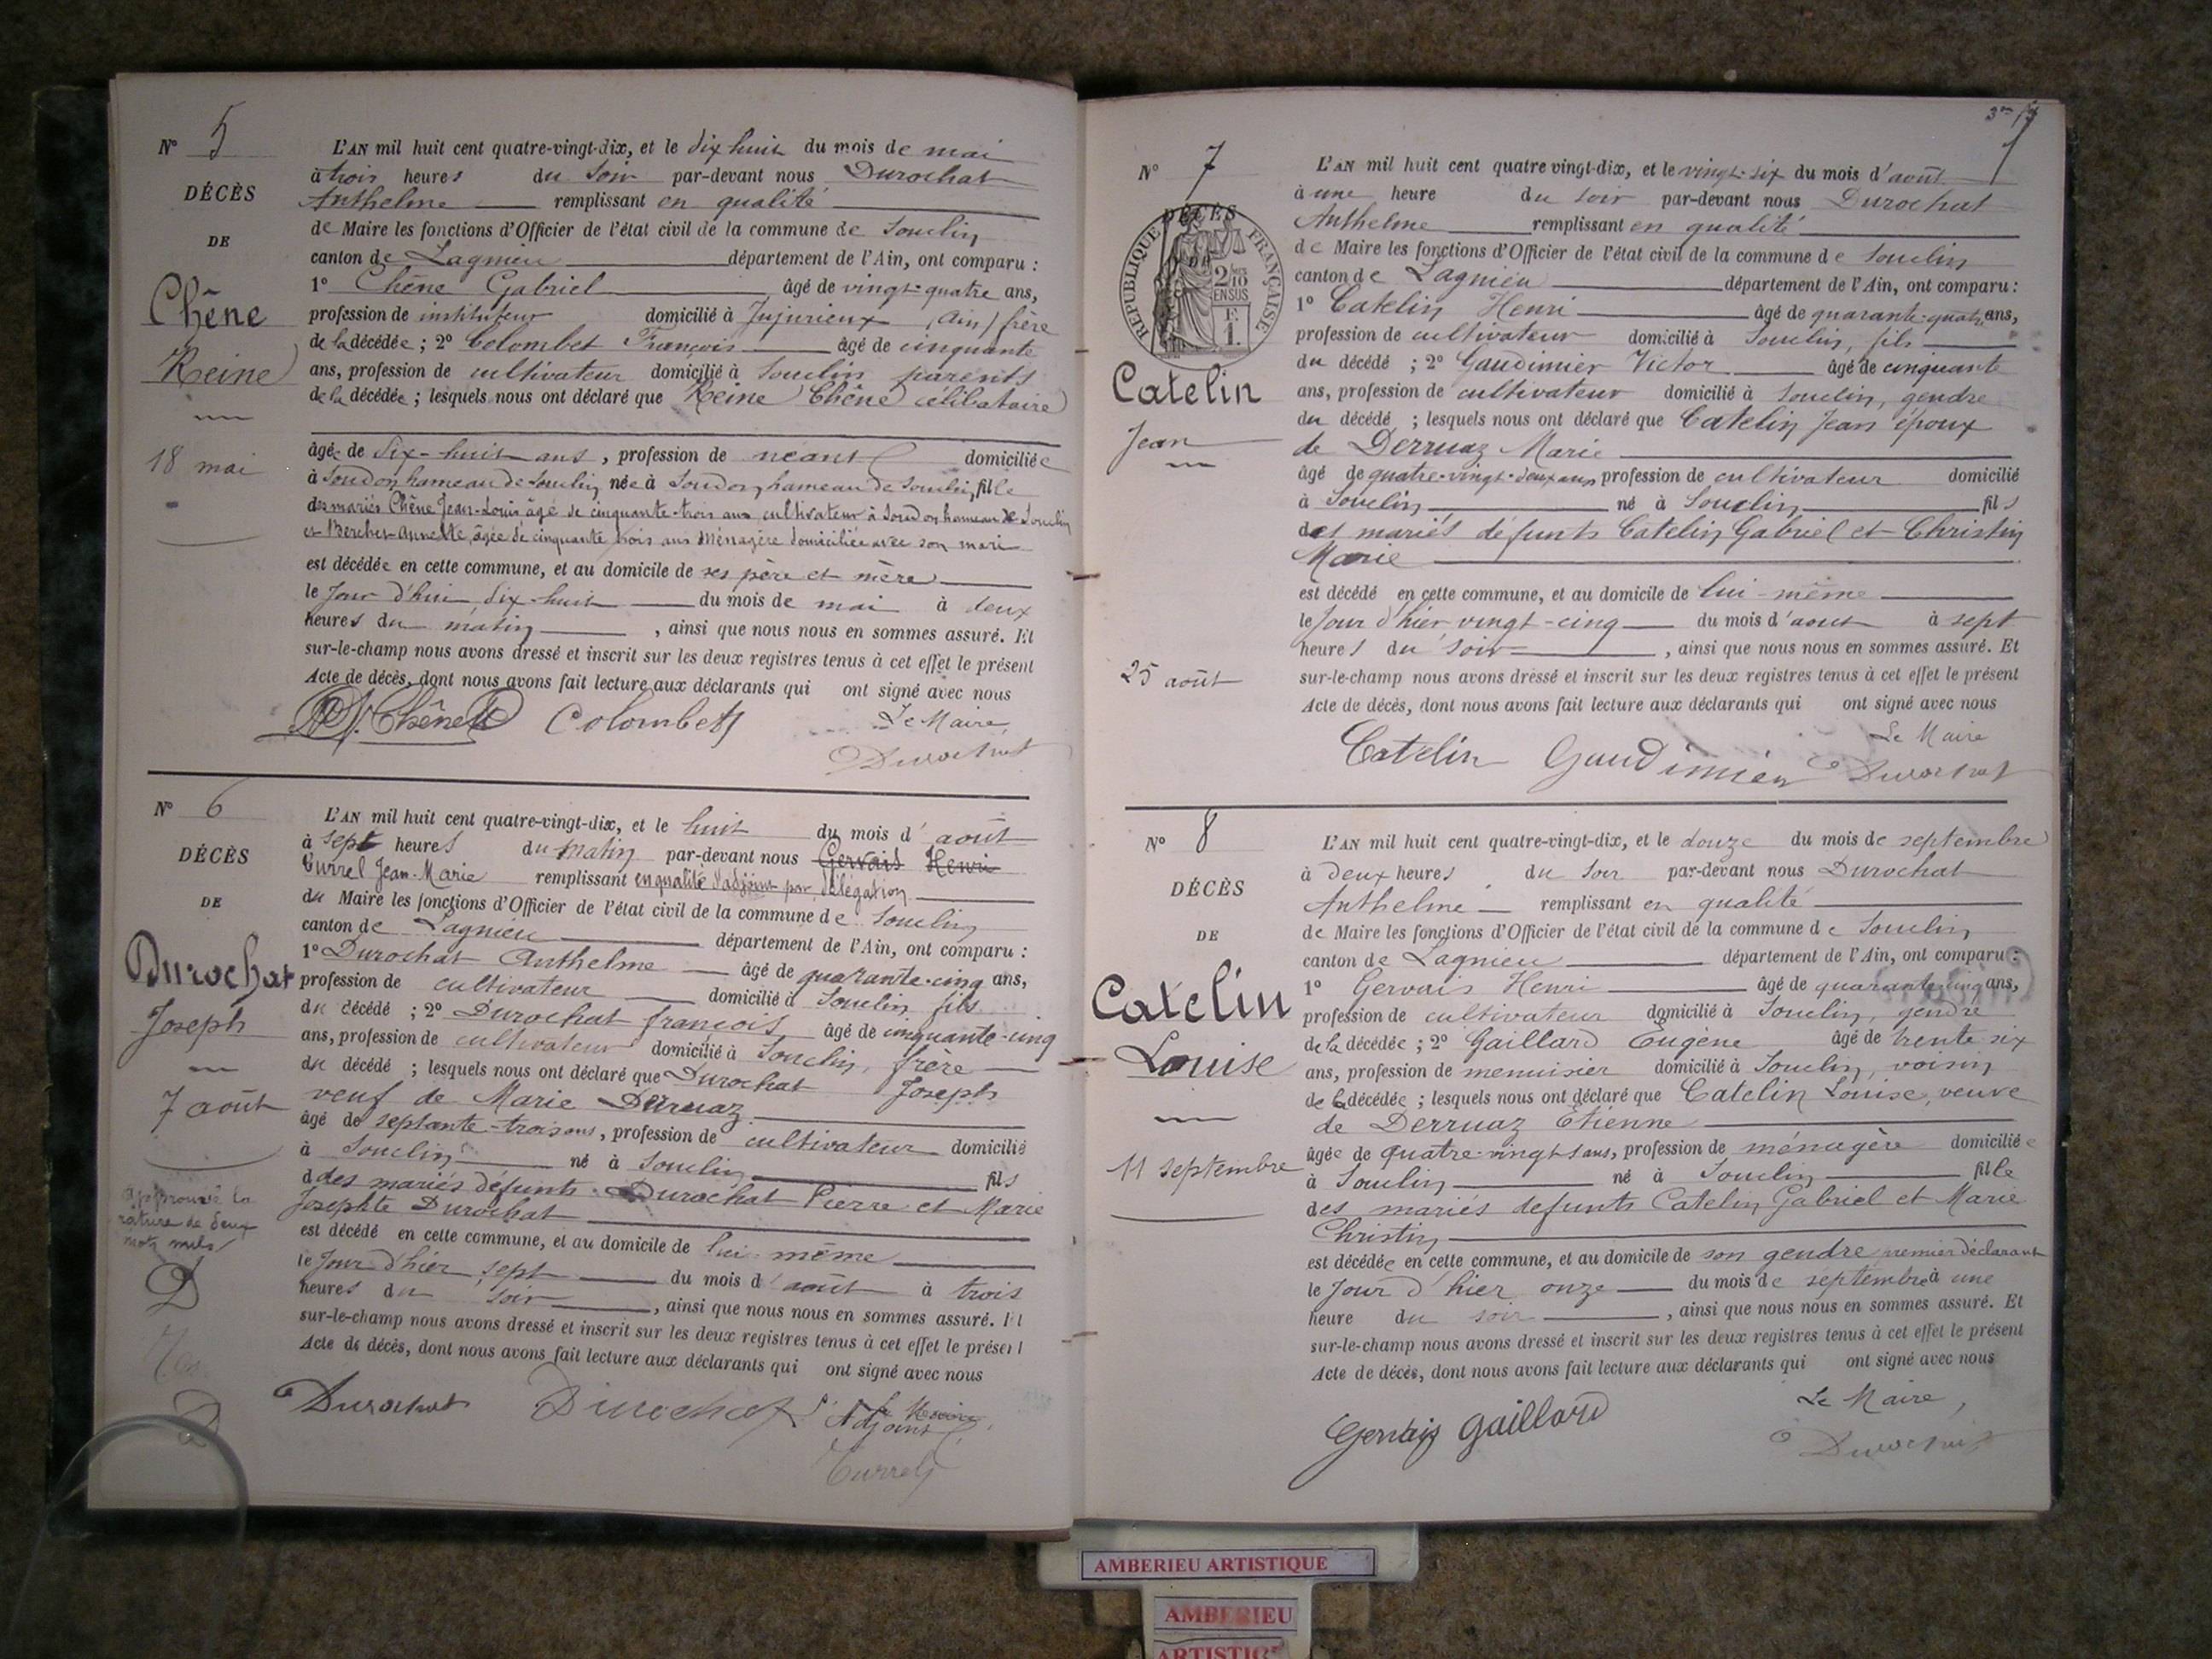 N° 5
DÉCÈS
DE
Chêne
Reine
18 mai
L'AN mil huit cent quatre-vingt-dix, et le dix huit du mois de mai
à trois heures du soir par-devant nous Durochat
Anthelme remplissant en qualité
de Maire les fonctions d'Officier de l'état civil de la commune de Souclin
canton de Lagnieu département de l'Ain, ont comparu :
1° Chêne Gabriel âgé de vingt-quatre ans,
profession de instituteur domicilié à Jujurieux (Ain) frère
de la décédée ; 2° Colombet François âgé de cinquante
ans, profession de cultivateur domicilié à Souclin parents
de la décédée ; lesquels nous ont déclaré que Reine Chêne célibataire
âgée de dix-huit ans, profession de néant domiciliée
à Soudon hameau de Souclin née à Soudon, hameau de Souclin, fille
des mariés Chêne Jean-Louis âgé de cinquante-trois ans cultivateur à Soudon hameau de Souclin
et Berchet Annette, âgée de cinquante trois ans ménagère domiciliée avec son mari
est décédée en cette commune, et au domicile de ses père et mère
le Jour d'hui dix-huit du mois de mai à deux
heures du matin, ainsi que nous nous en sommes assuré. Et
sur-le-champ nous avons dressé et inscrit sur les deux registres tenus à cet effet le présent
Acte de décès, dont nous avons fait lecture aux déclarants qui ont signé avec nous
Chêne Colombet Le Maire,
Durochat
N° 6
DÉCÈS
DE
Durochat
Joseph
7 août
approuvé la
rature de deux
mots nuls
D
L'AN mil huit cent quatre-vingt-dix, et le huit du mois d'août
à sept heures du matin par-devant nous Gervais Henri
Currel Jean-Marie remplissant en qualité d'adjoint par délégation
du Maire les fonctions d'Officier de l'état civil de la commune de Souclin
canton de Lagnieu département de l'Ain, ont comparu :
1° Durochat Anthelme âgé de quarante-cinq ans,
profession de cultivateur domicilié à Souclin, fils
du décédé ; 2° Durochat françois âgé de cinquante-cinq
ans, profession de cultivateur domicilié à Souclin, frère
du décédé ; lesquels nous ont déclaré que Durochat Joseph
veuf de Marie Derruaz
âgé de septante-trois ans, profession de cultivateur domicilié
à Souclin né à Souclin fils
d des mariés défunts Durochat Pierre et Marie
Josephte Durochat
est décédé en cette commune, et au domicile de lui-même
le Jour d'hier sept du mois d'août à trois
heures du soir, ainsi que nous nous en sommes assuré. Et
sur-le-champ nous avons dressé et inscrit sur les deux registres tenus à cet effet le présent
Acte de décès, dont nous avons fait lecture aux déclarants qui ont signé avec nous
Durochat Durochat Adjoint
Currel
3me
N° 7
DÉCÈS
DE
RÉPUBLIQUE FRANÇAISE
2/10 EN SUS
F. 1.
Catelin
Jean
25 août
L'AN mil huit cent quatre vingt-dix, et le vingt-six du mois d'août
à une heure du soir par-devant nous Durochat
Anthelme remplissant en qualité
de Maire les fonctions d'Officier de l'état civil de la commune de Souclin
canton de Lagnieu département de l'Ain, ont comparu :
1° Catelin Henri âgé de quarante-quatre ans,
profession de cultivateur domicilié à Souclin, fils
du décédé ; 2° Gaudimier Victor âgé de cinquante
ans, profession de cultivateur domicilié à Souclin, gendre
du décédé ; lesquels nous ont déclaré que Catelin Jean époux
de Derruaz Marie
âgé de quatre-vingt-deux ans profession de cultivateur domicilié
à Souclin né à Souclin fils
des mariés défunts Catelin Gabriel et Christin
Marie
est décédé en cette commune, et au domicile de lui-même
le Jour d'hier vingt-cinq du mois d'août à sept
heures du soir, ainsi que nous nous en sommes assuré. Et
sur-le-champ nous avons dressé et inscrit sur les deux registres tenus à cet effet le présent
Acte de décès, dont nous avons fait lecture aux déclarants qui ont signé avec nous
Le Maire
Catelin Gaudimier Durochat
N° 8
DÉCÈS
DE
Catelin
Louise
11 septembre
L'AN mil huit cent quatre-vingt-dix, et le douze du mois de septembre
à deux heures du soir par-devant nous Durochat
Anthelme remplissant en qualité
de Maire les fonctions d'Officier de l'état civil de la commune de Souclin
canton de Lagnieu département de l'Ain, ont comparu :
1° Gervais Henri âgé de quarante cinq ans,
profession de cultivateur domicilié à Souclin, gendre
de la décédée ; 2° Gaillard Eugène âgé de trente six
ans, profession de menuisier domicilié à Souclin, voisin
de la décédée ; lesquels nous ont déclaré que Catelin Louise, veuve
de Derruaz Etienne
âgée de quatre-vingts ans, profession de ménagère domiciliée
à Souclin né à Souclin fille
des mariés defunts Catelin Gabriel et Marie
Christin
est décédée en cette commune, et au domicile de son gendre premier déclarant
le Jour d'hier onze du mois de septembre à une
heure du soir, ainsi que nous nous en sommes assuré. Et
sur-le-champ nous avons dressé et inscrit sur les deux registres tenus à cet effet le présent
Acte de décès, dont nous avons fait lecture aux déclarants qui ont signé avec nous
Le Maire,
Gervais Gaillard Durochat
AMBERIEU ARTISTIQUE
AMBERIEU
ARTISTIQ